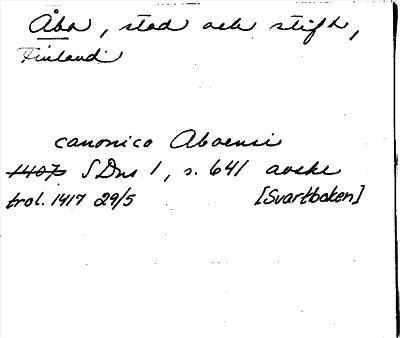 Åbo, stad och stift,
Finland
canonico Aboensi
1407 SDns 1, s. 641 avskr
trol. 1417 29/5 [Svartboken]